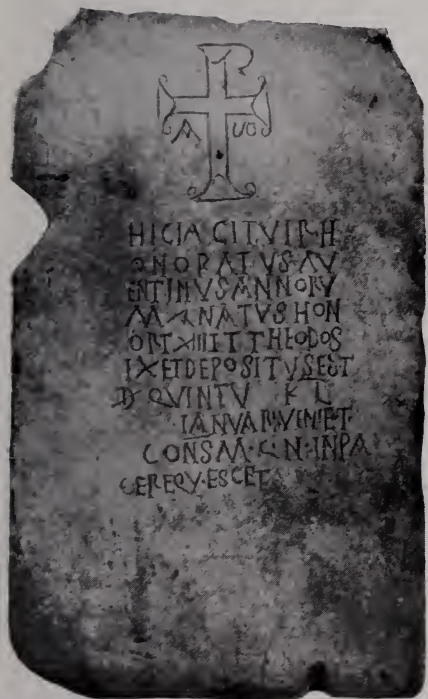 A ω
HIC IACIT VIR H
ONORATVS AV
ENTINVS ANNORV
M NATVS HON
ET THEODOS
ET DEPOSITVS EST
D QVINTV KL
IANVAR VIN ET
CONS M N IN PA
CE REQV·ESCET